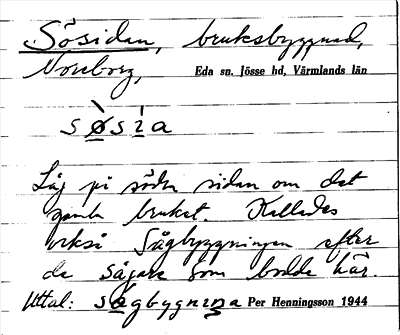 Sösidan, bruksbyggnad,
Noreborg, Eda sn. Jösse hd, Värmlands län
søsia
Låg på södra sidan om det
gamla bruket. Kallades
också Sågbyggningen efter
de sågare som bodde här.
Uttal: sågbygnıŋa Per Henningsson 1944